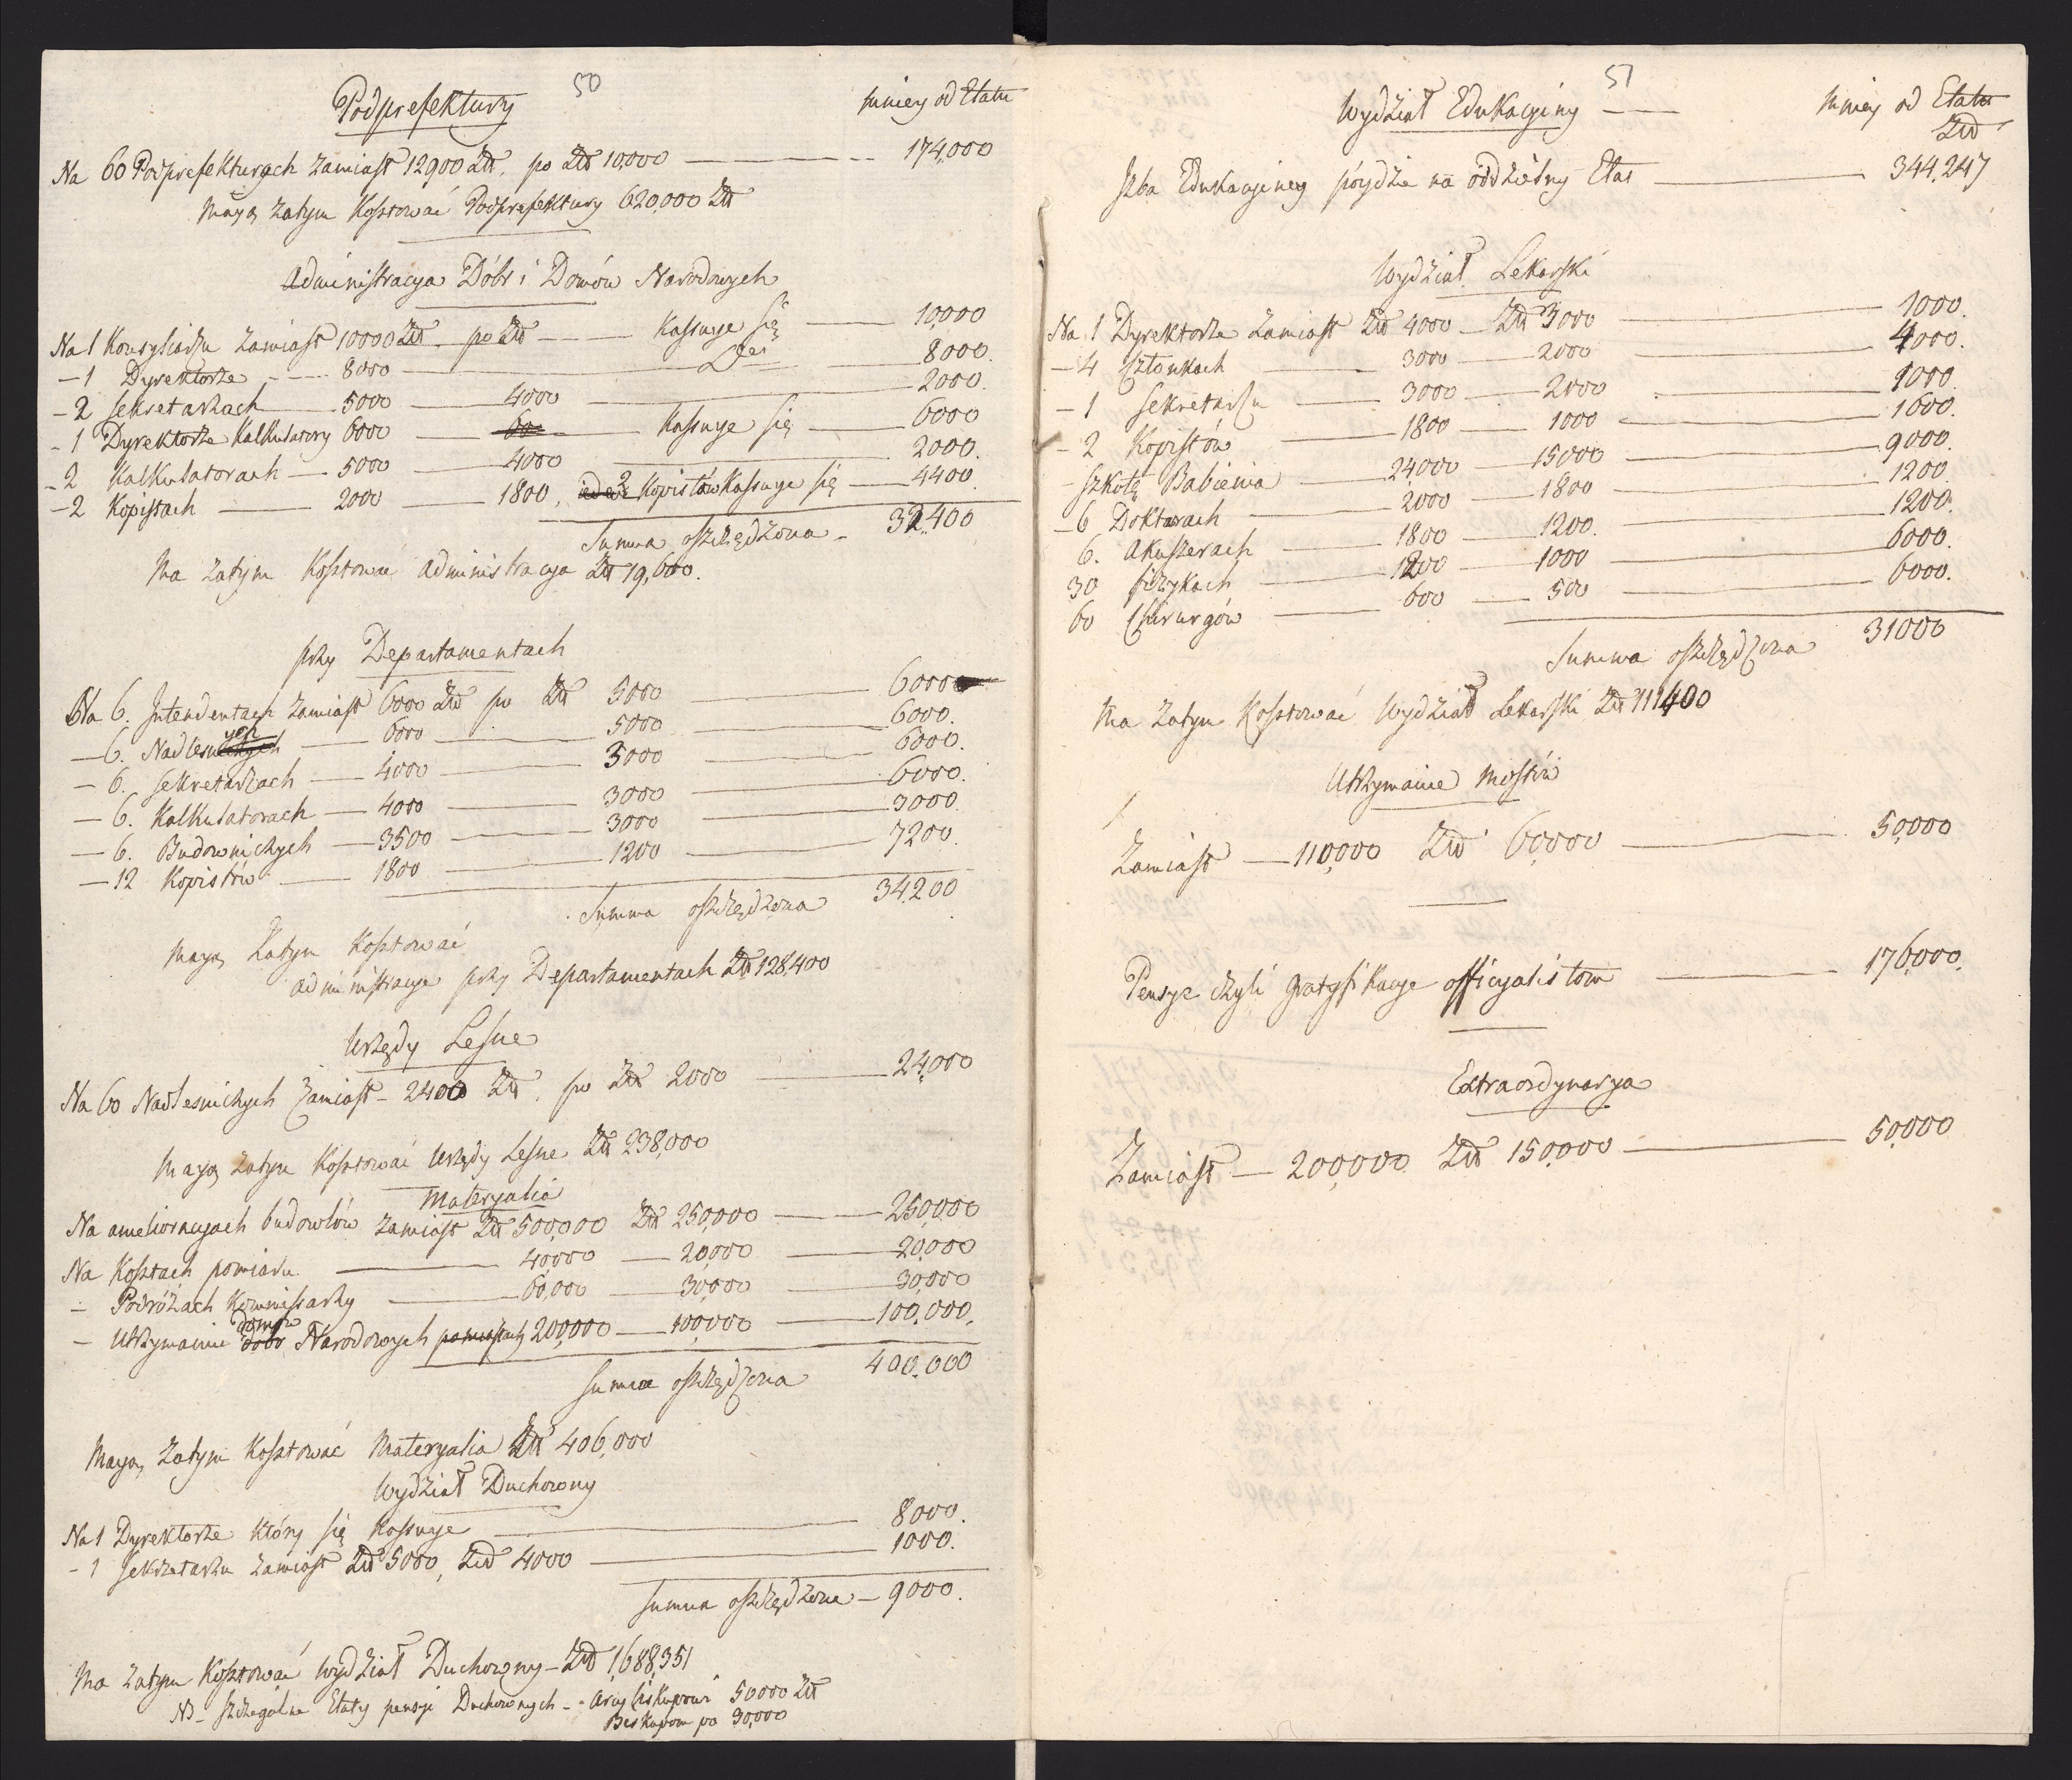 50
Podprefektury
mniey od Etatu
Na 60 Podprefekturach zamiast 12900 Zł. po Zł 10,000 — 174,000
Mayą zatym kosztować Podprefektury 620,000 Zł
Administracya Dóbr i Domów Narodowych
Na 1 Konsyliarzu zamiast 10000 Zł. po Zł — kassuje się — 10,000
— 1 Dyrektorze — 8000 — 8000.
— 2 Sekretarzach — 5000 — 4000 — 2000.
— 1 Dyrektorze Kalkulatory 6000 — kassuje się — 6000
— 2 Kalkulatorach — 5000 — 4000 — 2000.
— 2 Kopistach — 2000 — 1800, 2 Kopistów kassuje się — 4400.
Summa oszczędzona — 32,400
Ma zatym kosztować administracya Zł 19,600.
przy Departamentach
Na 6. Intendentach zamiast 6000 Zł po Zł 5000 — 6000
— 6. Nadleśnych — 6000 — 5000 — 6000.
— 6. Sekretarzach — 4000 — 3000 — 6000.
— 6. Kalkulatorach — 4000 — 3000 — 6000.
— 6. Budowniczych — 3500 — 3000 — 3000.
— 12 Kopistów — 1800 — 1200 — 7200.
Summa oszczędzona 34,200
Mayą zatym kosztować
administracye przy Departamentach Zł 128,400
Urzędy Leśne
Na 60 Nadleśniczych zamiast — 2400 Zł. po Zł 2000 — 24,000
Mayą zatym kosztować Urzędy Leśne Zł 238,000
Materyalia
Na amelioracyach budowlów zamiast Zł 500,000 Zł 250,000 — 250,000
Na kosztach pomiaru — 40,000 — 20,000 — 20,000
— Podróżach Kommissarzy — 60,000 — 30,000 — 30,000
— Utrzymanie domów Narodowych 200,000 — 100,000 — 100,000.
Summa oszczędzona 400,000
Mayą zatym kosztować Materyalia Zł 406,000
Wydział Duchowny
Na 1 Dyrektorze który się kassuje — 8000.
— 1 Sekretarzu zamiast Zł 5000, Zł 4000 — 1000.
Summa oszczędzona — 9000.
Ma zatym kosztować Wydział Duchowny — Zł 1,688,351
NB — szczególne Etaty pensji Duchownych — Arcybiskupowi 50000 Zł
Biskupom po 30,000
51
Wydział Edukacyiny —
mniey od Etatu
Zł
Izba Edukacyiney póydzie na oddzielny Etat — 344,247
Wydział Lekarski
Na 1 Dyrektorze zamiast Zł 4000 — Zł 3000 — 1000.
— 4 Członkach — 3000 — 2000 — 4000.
— 1 Sekretarzu — 3000 — 2000 — 1000.
— 2 Kopistów — 1800 — 1000 — 1600.
— Szkołę Babienia — 24,000 — 15000 — 9000.
— 6 Doktorach — 2000 — 1800 — 1200.
6. Akuszerach — 1800 — 1200. — 1200.
30 fizykach — 1200 — 1000 — 6000.
60 Chirurgów — 600 — 500 — 6000.
Summa oszczędzona 31000
Ma zatym kosztować Wydział Lekarski Zł 111400
Utrzymanie mostów
Zamiast — 110,000 Zł 60,000 — 50,000
Pensye czyli gratyfikacye officyalistom — 176,000.
Extraordynarya
Zamiast — 200,000 Zł 150,000 — 50,000